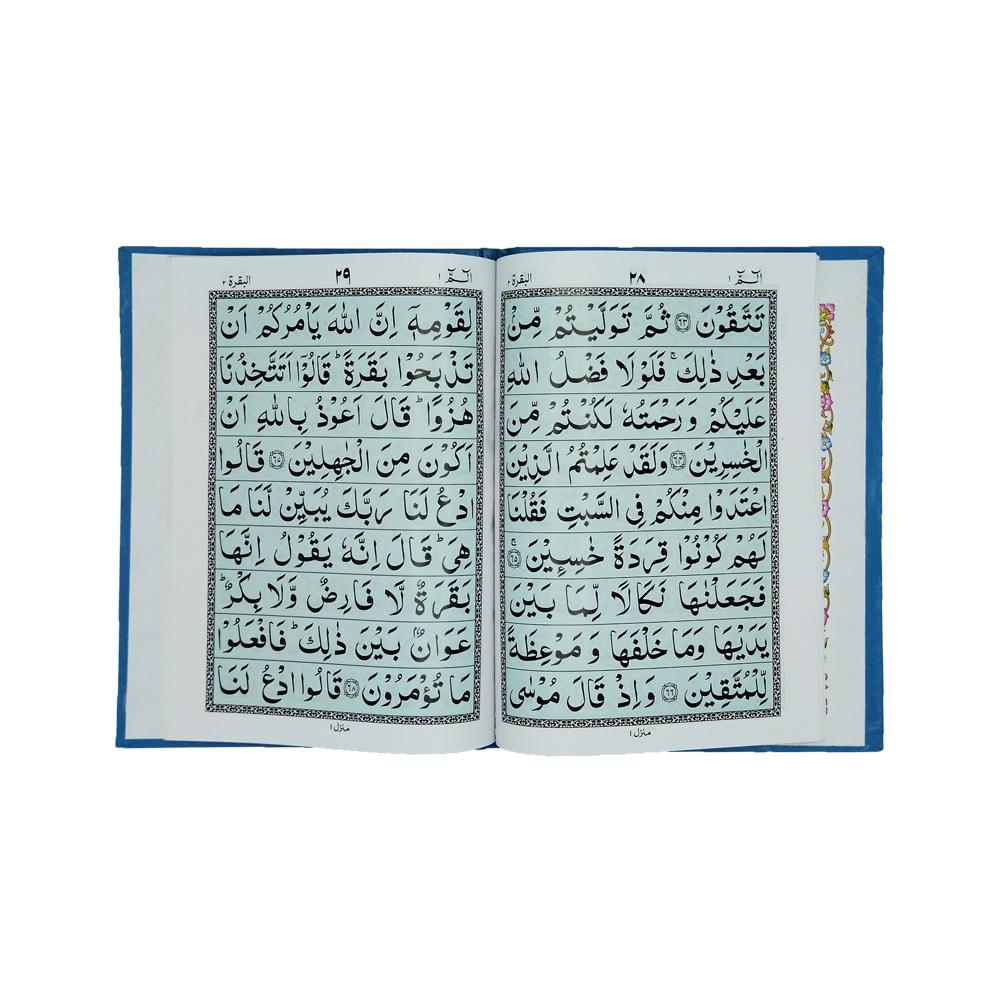 الٓمّٓ ١ ٢٨ البقرة ٢
تَتَّقُوْنَ ۝٦٣ ثُمَّ تَوَلَّيْتُمْ مِّنْۢ
بَعْدِ ذٰلِكَ ۚ فَلَوْلَا فَضْلُ اللّٰهِ
عَلَيْكُمْ وَرَحْمَتُهٗ لَكُنْتُمْ مِّنَ
الْخٰسِرِيْنَ ۝٦٤ وَلَقَدْ عَلِمْتُمُ الَّذِيْنَ
اعْتَدَوْا مِنْكُمْ فِى السَّبْتِ فَقُلْنَا
لَهُمْ كُوْنُوْا قِرَدَةً خٰسِـِٕيْنَ ۝٦٥ ۚ
فَجَعَلْنٰهَا نَكَالًا لِّمَا بَيْنَ
يَدَيْهَا وَمَا خَلْفَهَا وَ مَوْعِظَةً
لِّلْمُتَّقِيْنَ ۝٦٦ وَاِذْ قَالَ مُوْسٰى
منزل ١
الٓمّٓ ١ ٢٩ البقرة ٢
لِقَوْمِهٖٓ اِنَّ اللّٰهَ يَاْمُرُكُمْ اَنْ
تَذْبَحُوْا بَقَرَةً ؕ قَالُوْٓا اَتَتَّخِذُنَا
هُزُوًا ؕ قَالَ اَعُوْذُ بِاللّٰهِ اَنْ
اَكُوْنَ مِنَ الْجٰهِلِيْنَ ۝٦٧ قَالُوا
ادْعُ لَنَا رَبَّكَ يُبَيِّنْ لَّنَا مَا
هِىَ ؕ قَالَ اِنَّهٗ يَقُوْلُ اِنَّهَا
بَقَرَةٌ لَّا فَارِضٌ وَّلَا بِكْرٌ ؕ
عَوَانٌۢ بَيْنَ ذٰلِكَ ؕ فَافْعَلُوْا
مَا تُؤْمَرُوْنَ ۝٦٨ قَالُوا ادْعُ لَنَا
منزل ١